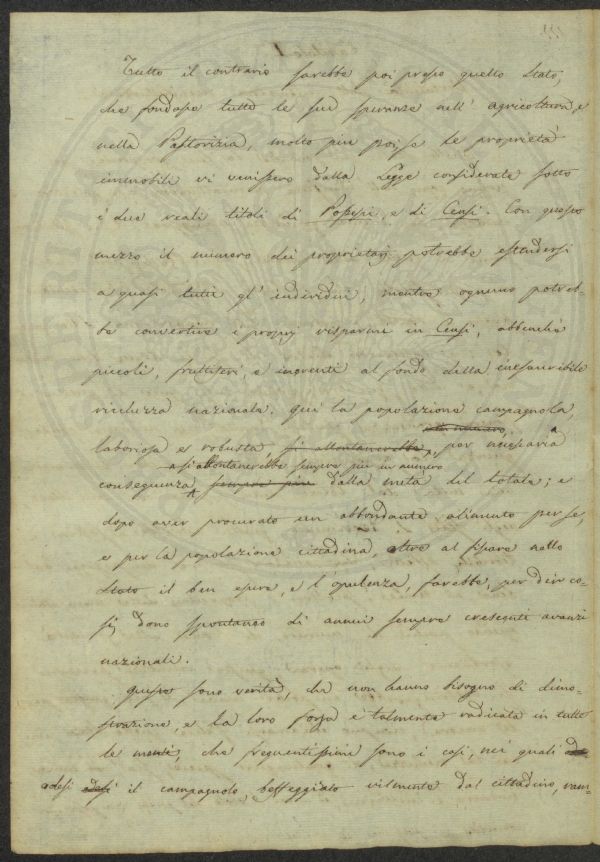 Tutto il contrario sarebbe poi presso quello Stato,
che fondasse tutte le sue speranze nell' agricoltura, e
nella Pastorizia, molto più poi se le proprietà
immobili vi venissero dalla Legge considerate sotto
i due reali titoli di Possessi, e di Censi. Con questo
mezzo il numero dei proprietarj potrebbe estendersi
a quasi tutti gl' individui, mentre ognuno potreb-
be convertire i proprj risparmi in Censi, abbenchè
piccoli, fruttiferi, e inerenti al fondo della inesauribile
ricchezza nazionale. Quì la popolazione campagnola
laboriosa e robusta, si allontanerebbe, per necessaria
a si allontanerebbe sempre più in numero
conseguenza, sempre più dalla metà del totale; e
dopo aver procurato un abbondante alimento per se,
e per la popolazione cittadina, oltre al fissare nello
Stato il ben essere, e l' opulenza, farebbe, per dir co-
sì, dono spontaneo di annui sempre crescenti avanzi
nazionali.
Queste sono verità, che non hanno bisogno di dimo-
strazione, e la loro forza è talmente radicata in tutte
le menti, che frequentissimi sono i casi, nei quali
odesi il campagnolo, beffeggiato vilmente dal cittadino, ram-